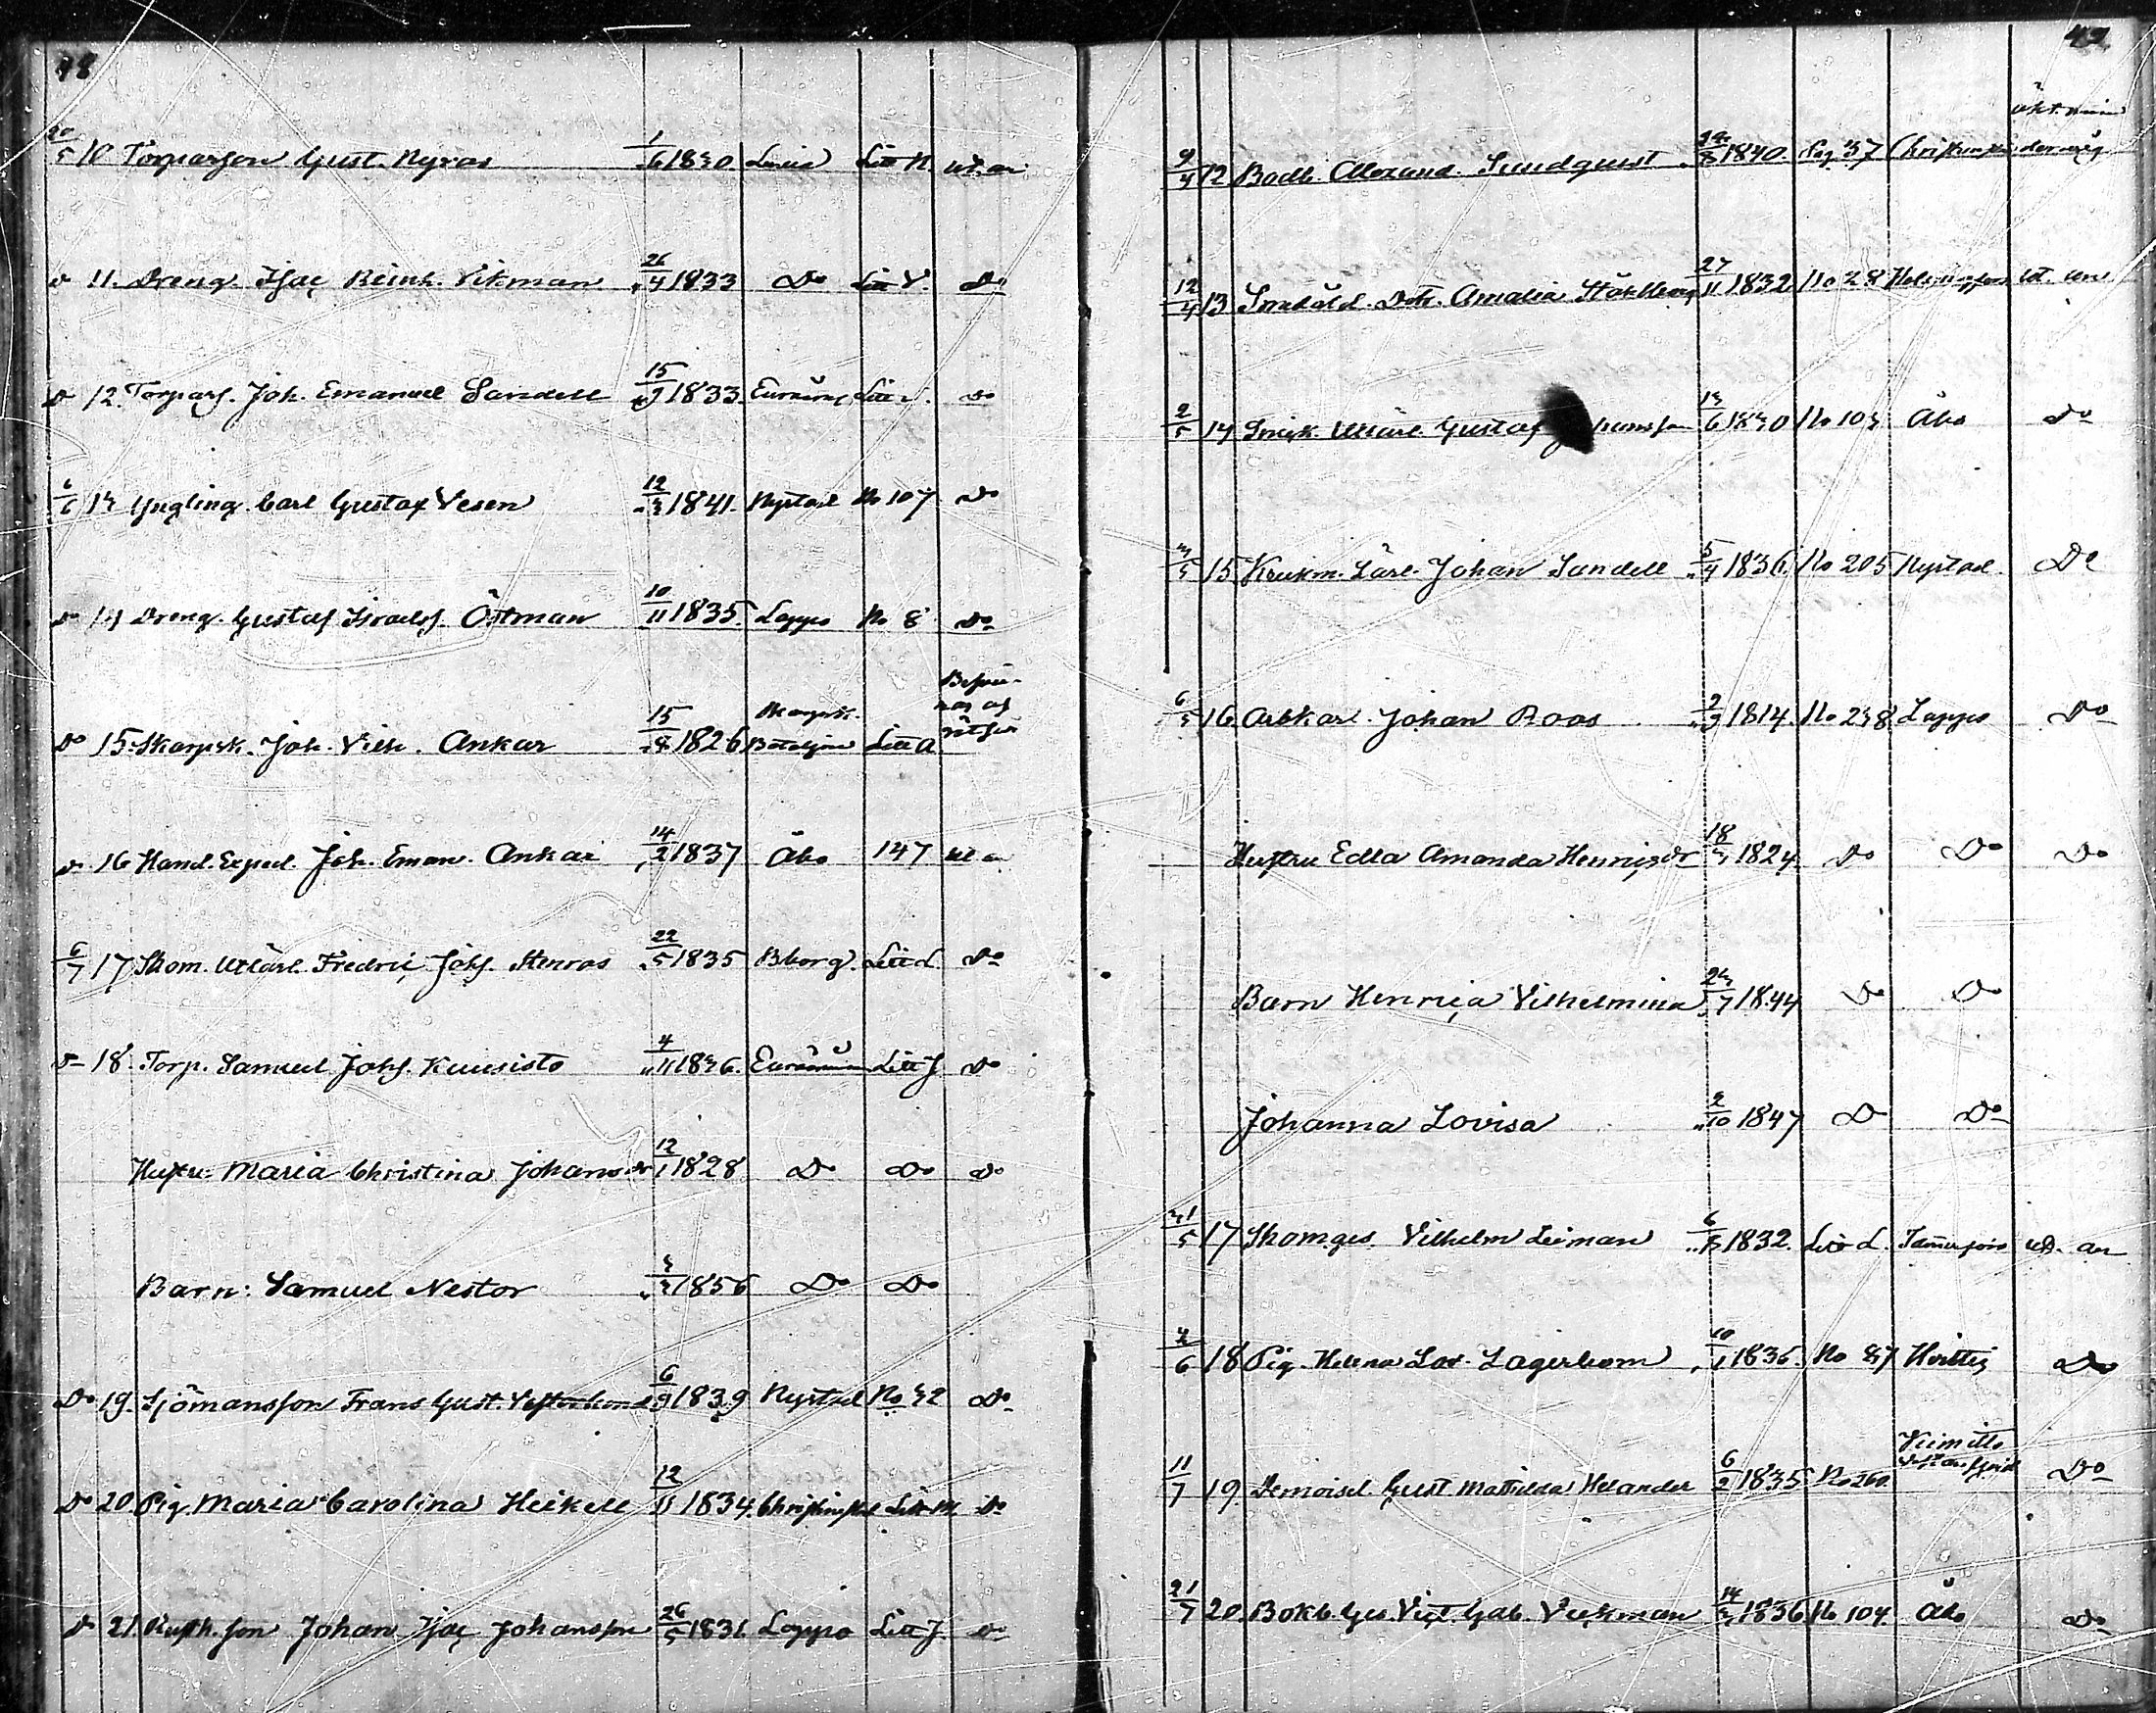 48
20/5 10 Torparson Gust. Nyros 1/6 1830. Luvia Litt N. ut. an
Do 11. Dreng. Isac Reinh. Vikman 26/4 1833 Do Litt V. Do
Do 12. Torpars. Joh. Emanuel Sandell 15/9 1833. Euraåm. Litt Do
6/6 13 Yngling. Carl Gustaf Vesen 12/3 1841. Nystad No 107 Do
Do 14 Dreng. Gustaf Israelss. Östman 10/11 1835. Lappo No 8 Do
Do 15. Skarpsk. Joh. Vilh. Ankar 15/8 1826 Bataljon Litt A
Do 16 Hand. Exped. Joh. Eman. Ankar 14/2 1837 Åbo 147 ut an
6/7 17 Skom. Utlärl. Fredric Johs. Stenros 22/5 1835 Bborg. Litt L. Do
Do 18. Torp. Samuel Johs. Kuusisto 4/11 1836. Euraåminne Litt J Do
Hustru Maria Christina Johansdr 12/1 1828 Do Do Do
Barn: Samuel Nestor 3/3 1856 Do Do
Do 19. Sjömansson Frans Gust. 6/9 1839 Nystad No 32 Do
Do 20. Pig. Maria Carolina Heikell 12/11 1834. Christinestad Litt M. Do
Do 21. son Johan Isac Johansson 26/5 1836. Lappo Litt J. Do
49
9/4 12 Bodb. Alexand. Sundqvist 24/8 1840. Pag. 37 Christinestad
12/4 13 Dott. Amalia Ståhlberg 27/11 1832. No 28 Helsingfors ut. an
2/5 14 Snick. Utlärl. Gustaf Johansson 13/6 1830 No 103 Åbo Do
3/5 15 Krukm. Lärl. Johan Sandell 5/4 1836. No 205 Nystad. Do
6/5 16. Arbkarl. Johan Roos 2/9 1814. No 238. Lappo Do
Hustru Edla Amanda Henricsdr 18/3 1824. Do Do Do
Barn Henrica Vilhelmina 23/7 1844 Do Do
Johanna Lovisa 2/10 1847 Do Do
31/5 17 Skom.ges. Vilhelm Leiman 6/5 1832. Litt L. Tammerfors ut. an
4/6 18 Pig. Helena Lov. Lagerbom 10/1 1836. No 87 Hvittis Do
11/7 19. Demoisel. Gust. Mathilda Helander 6/2 1835 No 260. Kimitto Do
21/7 20. Bokb. Ges. Vict. Gab. Vickman 14/3 1836 No 104. Åbo Do